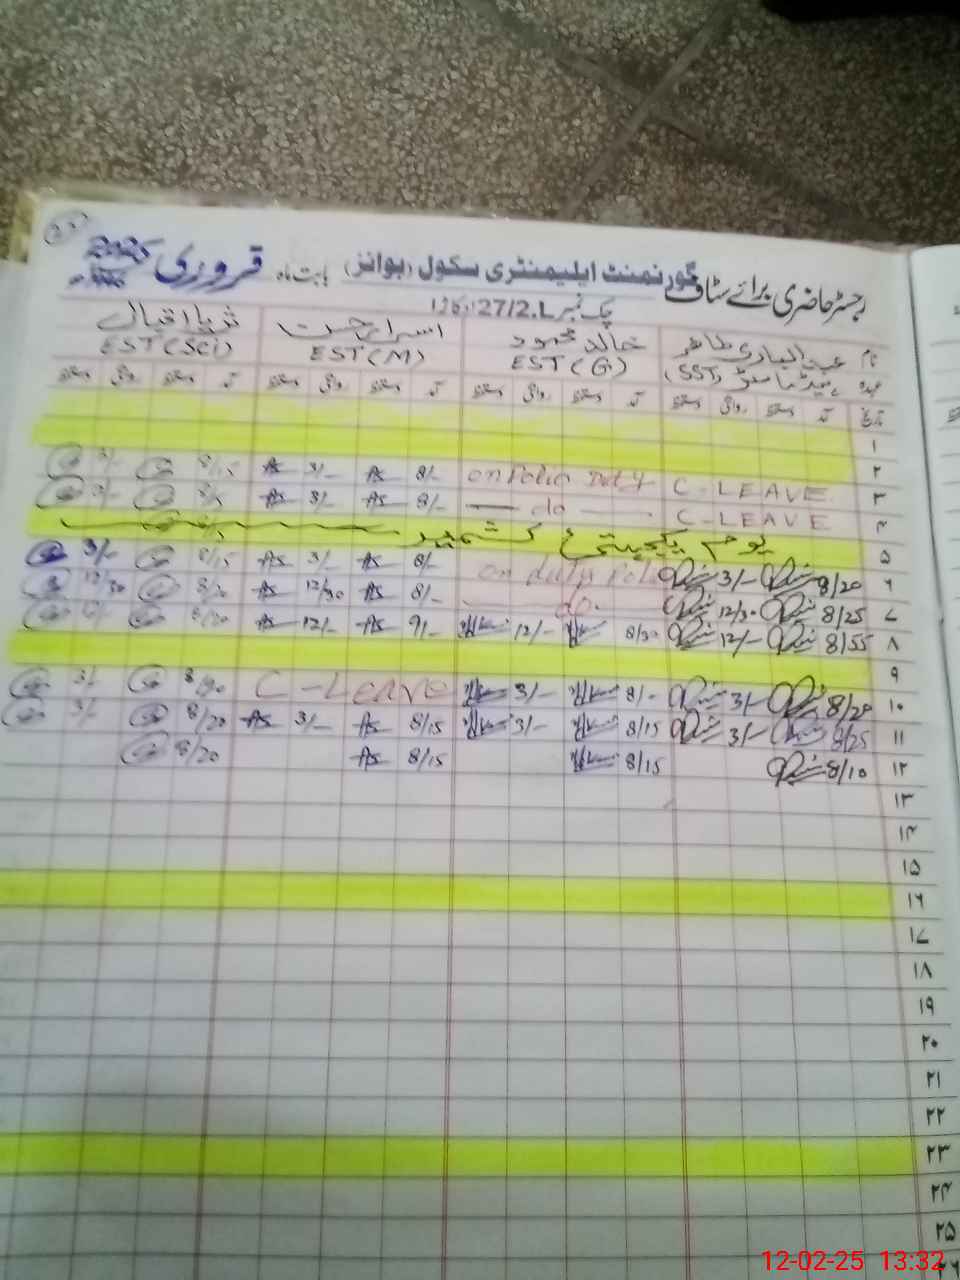 رجسٹر حاضری برائے سٹاف گورنمنٹ ایلیمنٹری سکول (بوائز) بابت ماہ فروری
چک نمبر 27/2.L اوکاڑا
نام عبدالباری طاہر خالد محمود اسرار ثریا اقبال
عہدہ ہیڈماسٹر (SST) EST(G) EST(M) EST(Sci)
تاریخ آمد دستخط روانگی دستخط آمد دستخط روانگی دستخط آمد دستخط روانگی دستخط آمد دستخط روانگی دستخط
۱
۲
۳ C-LEAVE on Polio Duty 8/- As 3/- As 8/15 3/-
۴ C-LEAVE do 8/- As 3/- As
۵ یوم یکجہتی کشمیر
۶ 8/20 3/- on duty Polio 8/- As 3/- As 8/15 3/-
۷ 8/25 12/30 do. 8/- As 12/30 As 12/30
۸ 8/55 12/- 8/30 12/- 9/- As 12/- As
۹
۱۰ 8/20 3/- 8/- 3/- C-LEAVE 3/-
۱۱ 8/25 3/- 8/15 3/- 8/15 As 3/- As 8/20 3/-
۱۲ 8/10 8/15 8/15 As 8/20
۱۳
۱۴
۱۵
۱۶
۱۷
۱۸
۱۹
۲۰
۲۱
۲۲
۲۳
۲۴
۲۵
12-02-25 13:32